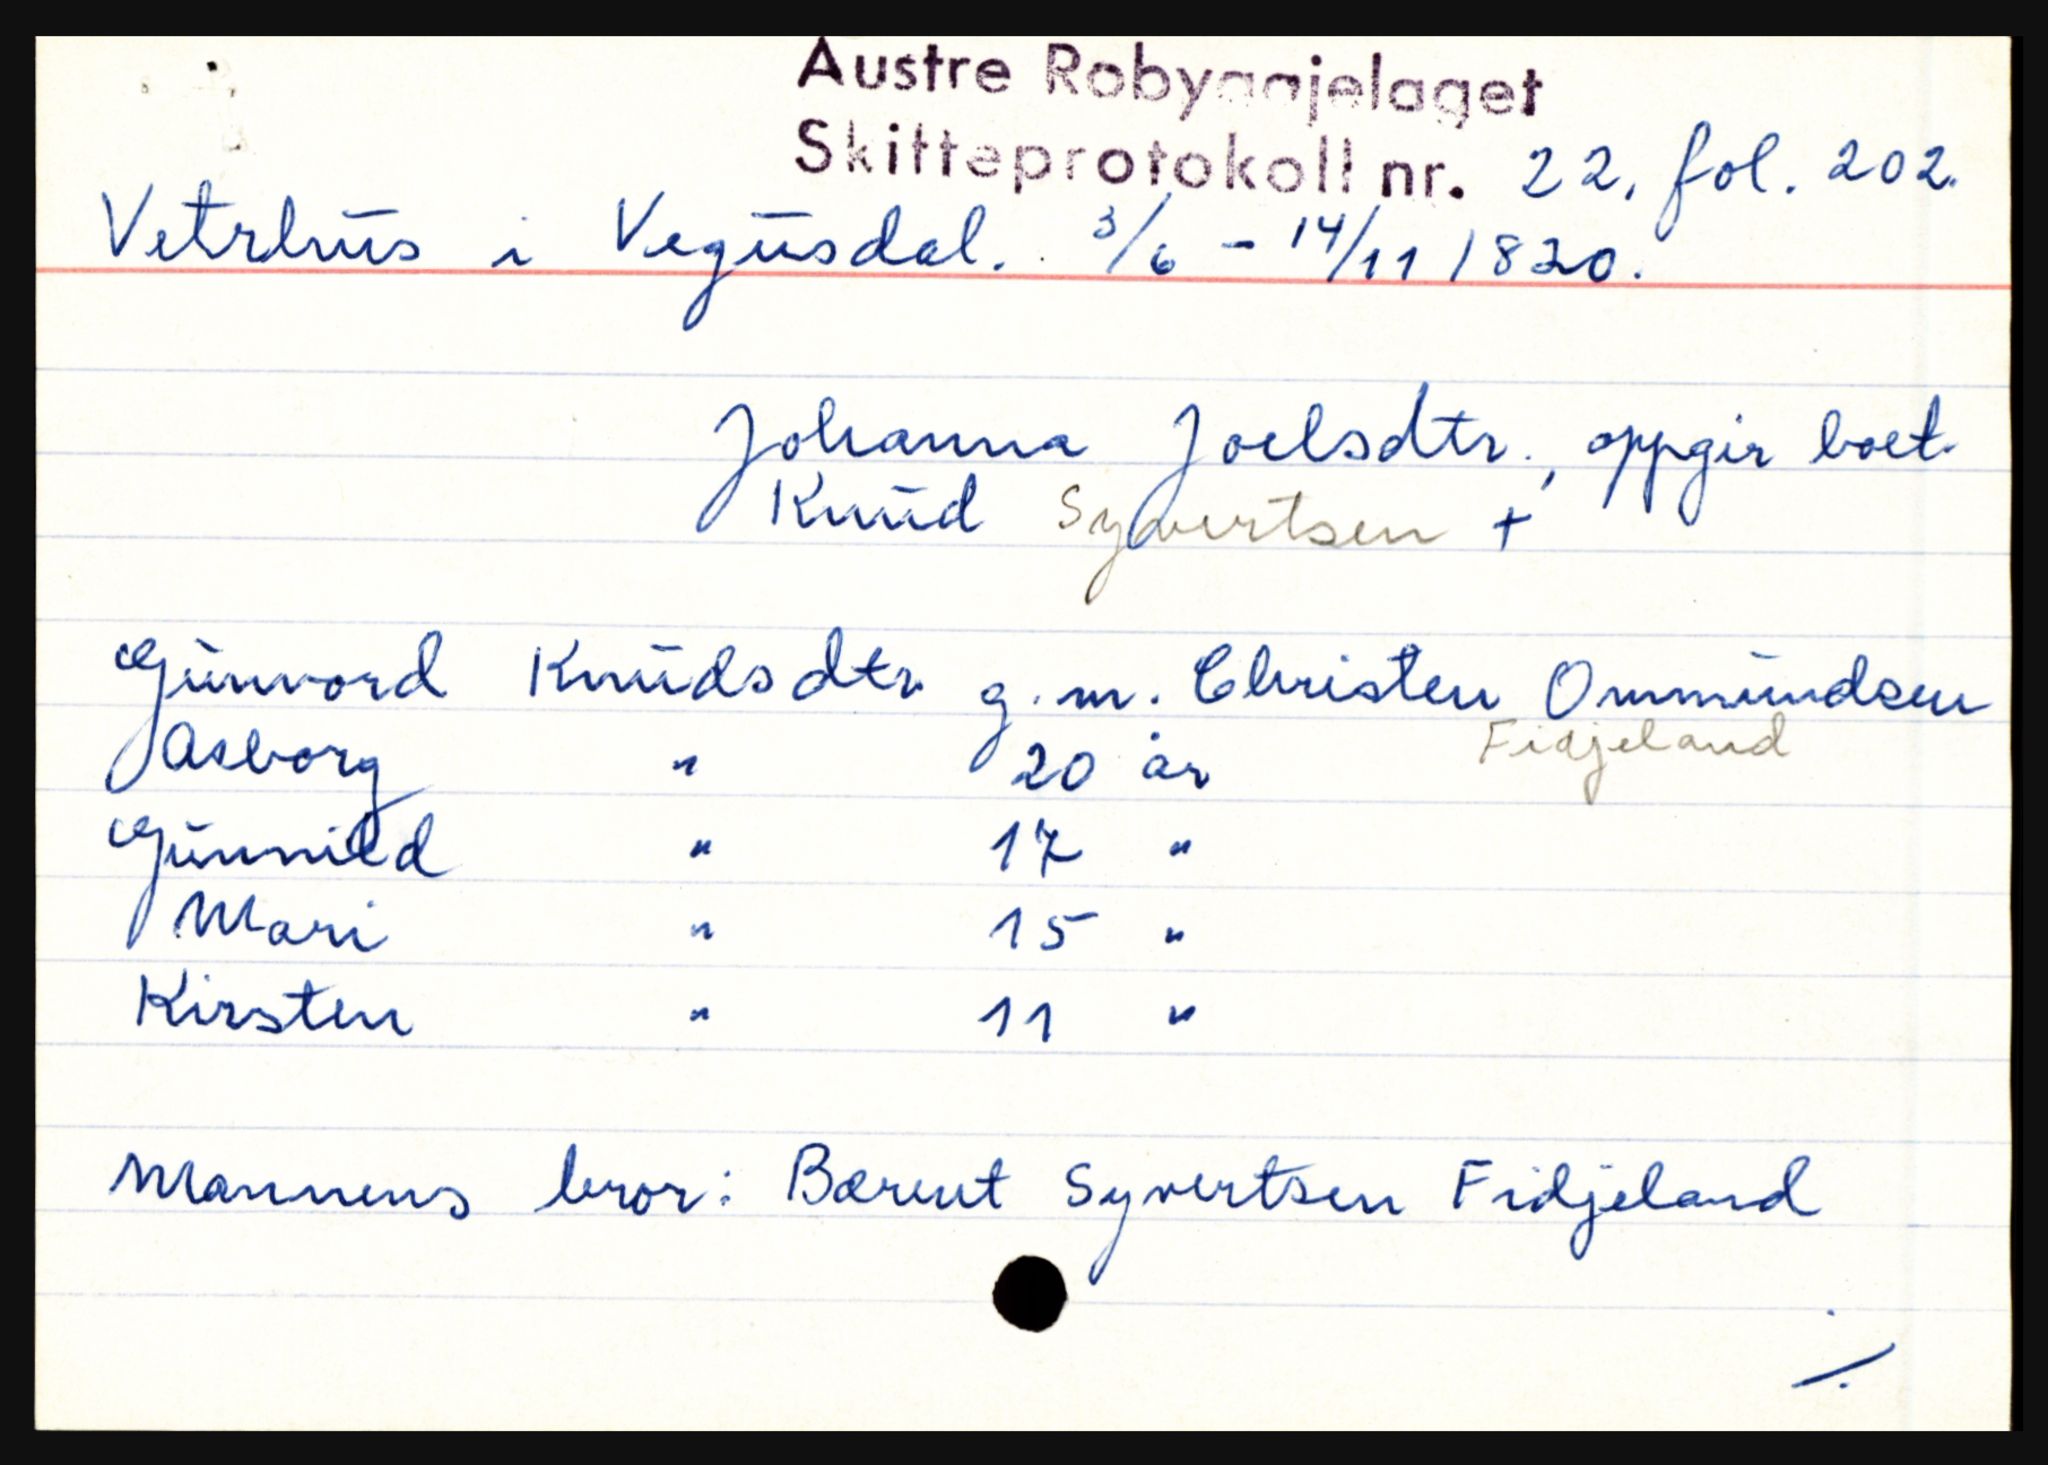 Austre Robyggjelaget
Skifteprotokoll nr. 22, fol. 202.
Vetrhus i Vegusdal. 3/6 - 14/11 1820.
Johanna Joelsdtr., oppgir boet.
Knud Syvertsen +
Gunvord Knudsdtr. g.m. Christen Ommundsen
Fidjeland
Asborg " 20 år
Gunnild " 17 "
Mari " 15 "
Kirsten " 11 "
Mannens bror: Bærent Syvertsen Fidjeland
./.